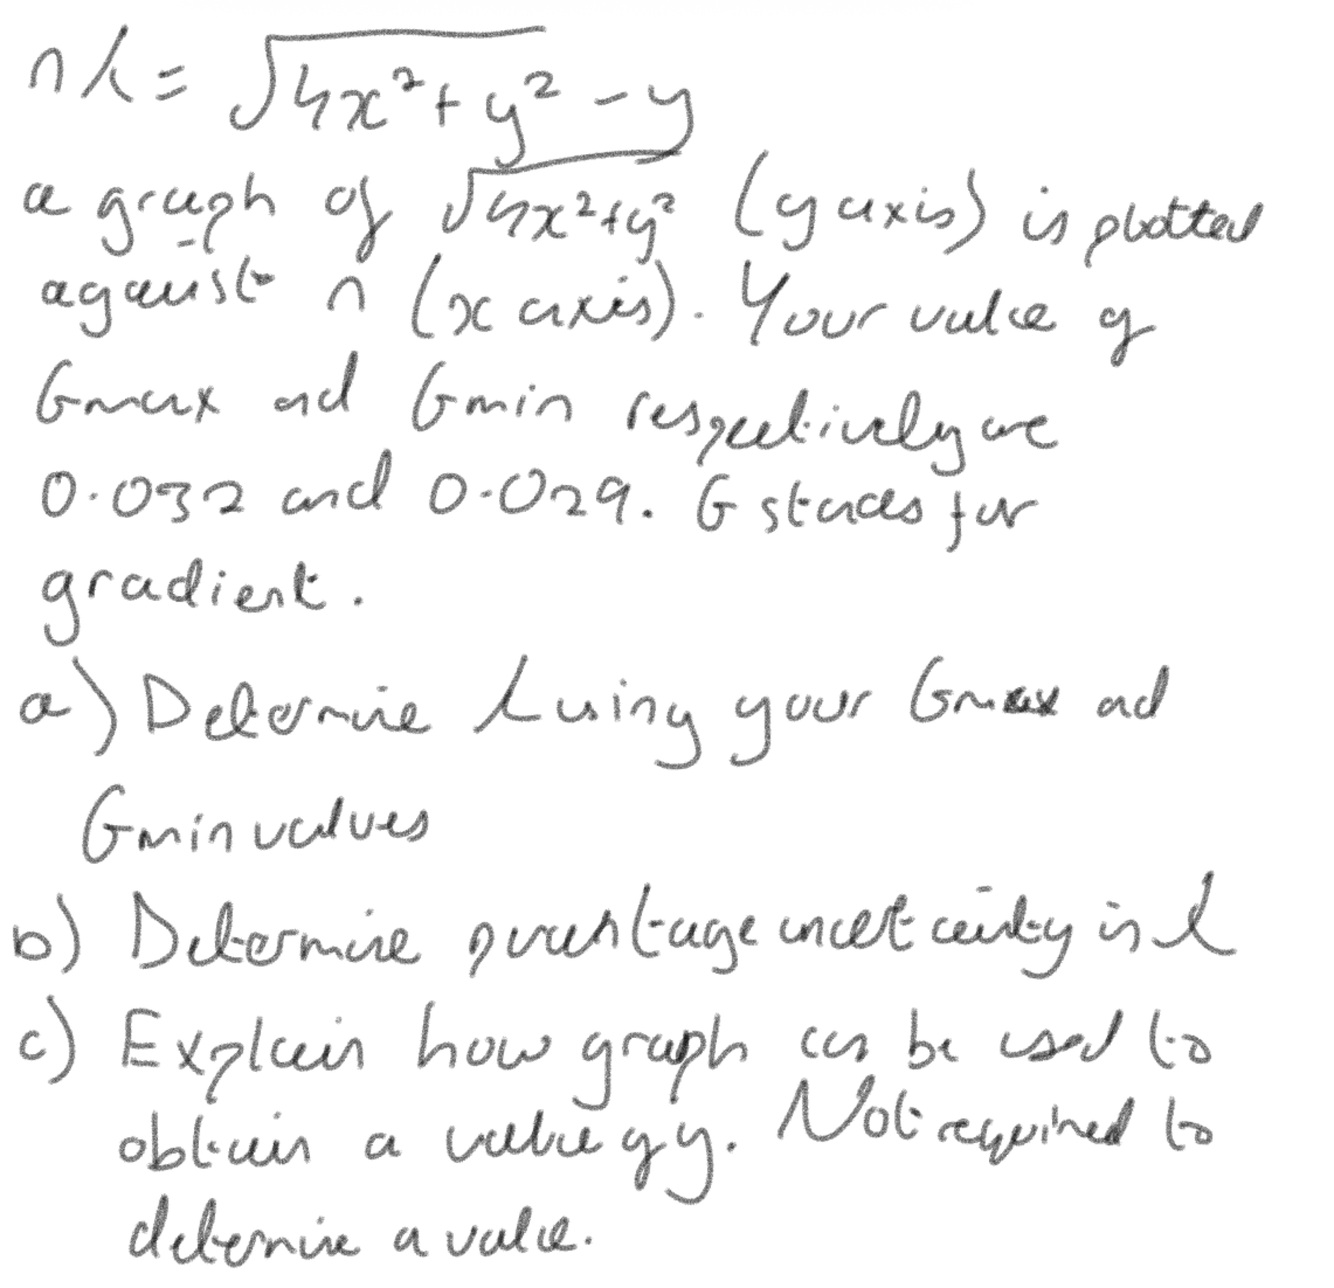 nλ = √4x²+y² - y
a graph of √4x²+y² (y axis) is plotted
against n (x axis). Your value of
Gmax and Gmin respectively are
0.032 and 0.029. G stands for
gradient.
a) Determine λ using your Gmax and
Gmin values
b) Determine percentage uncertainty in λ
c) Explain how graph can be used to
obtain a value of y. Not required to
determine a value.